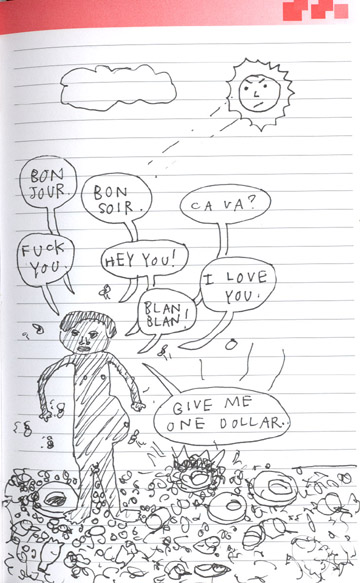 BON
JOUR.
BON
SOIR.
CA VA?
FUCK
YOU.
HEY YOU!
I LOVE
YOU.
BLAN
BLAN!
GIVE ME
ONE DOLLAR.